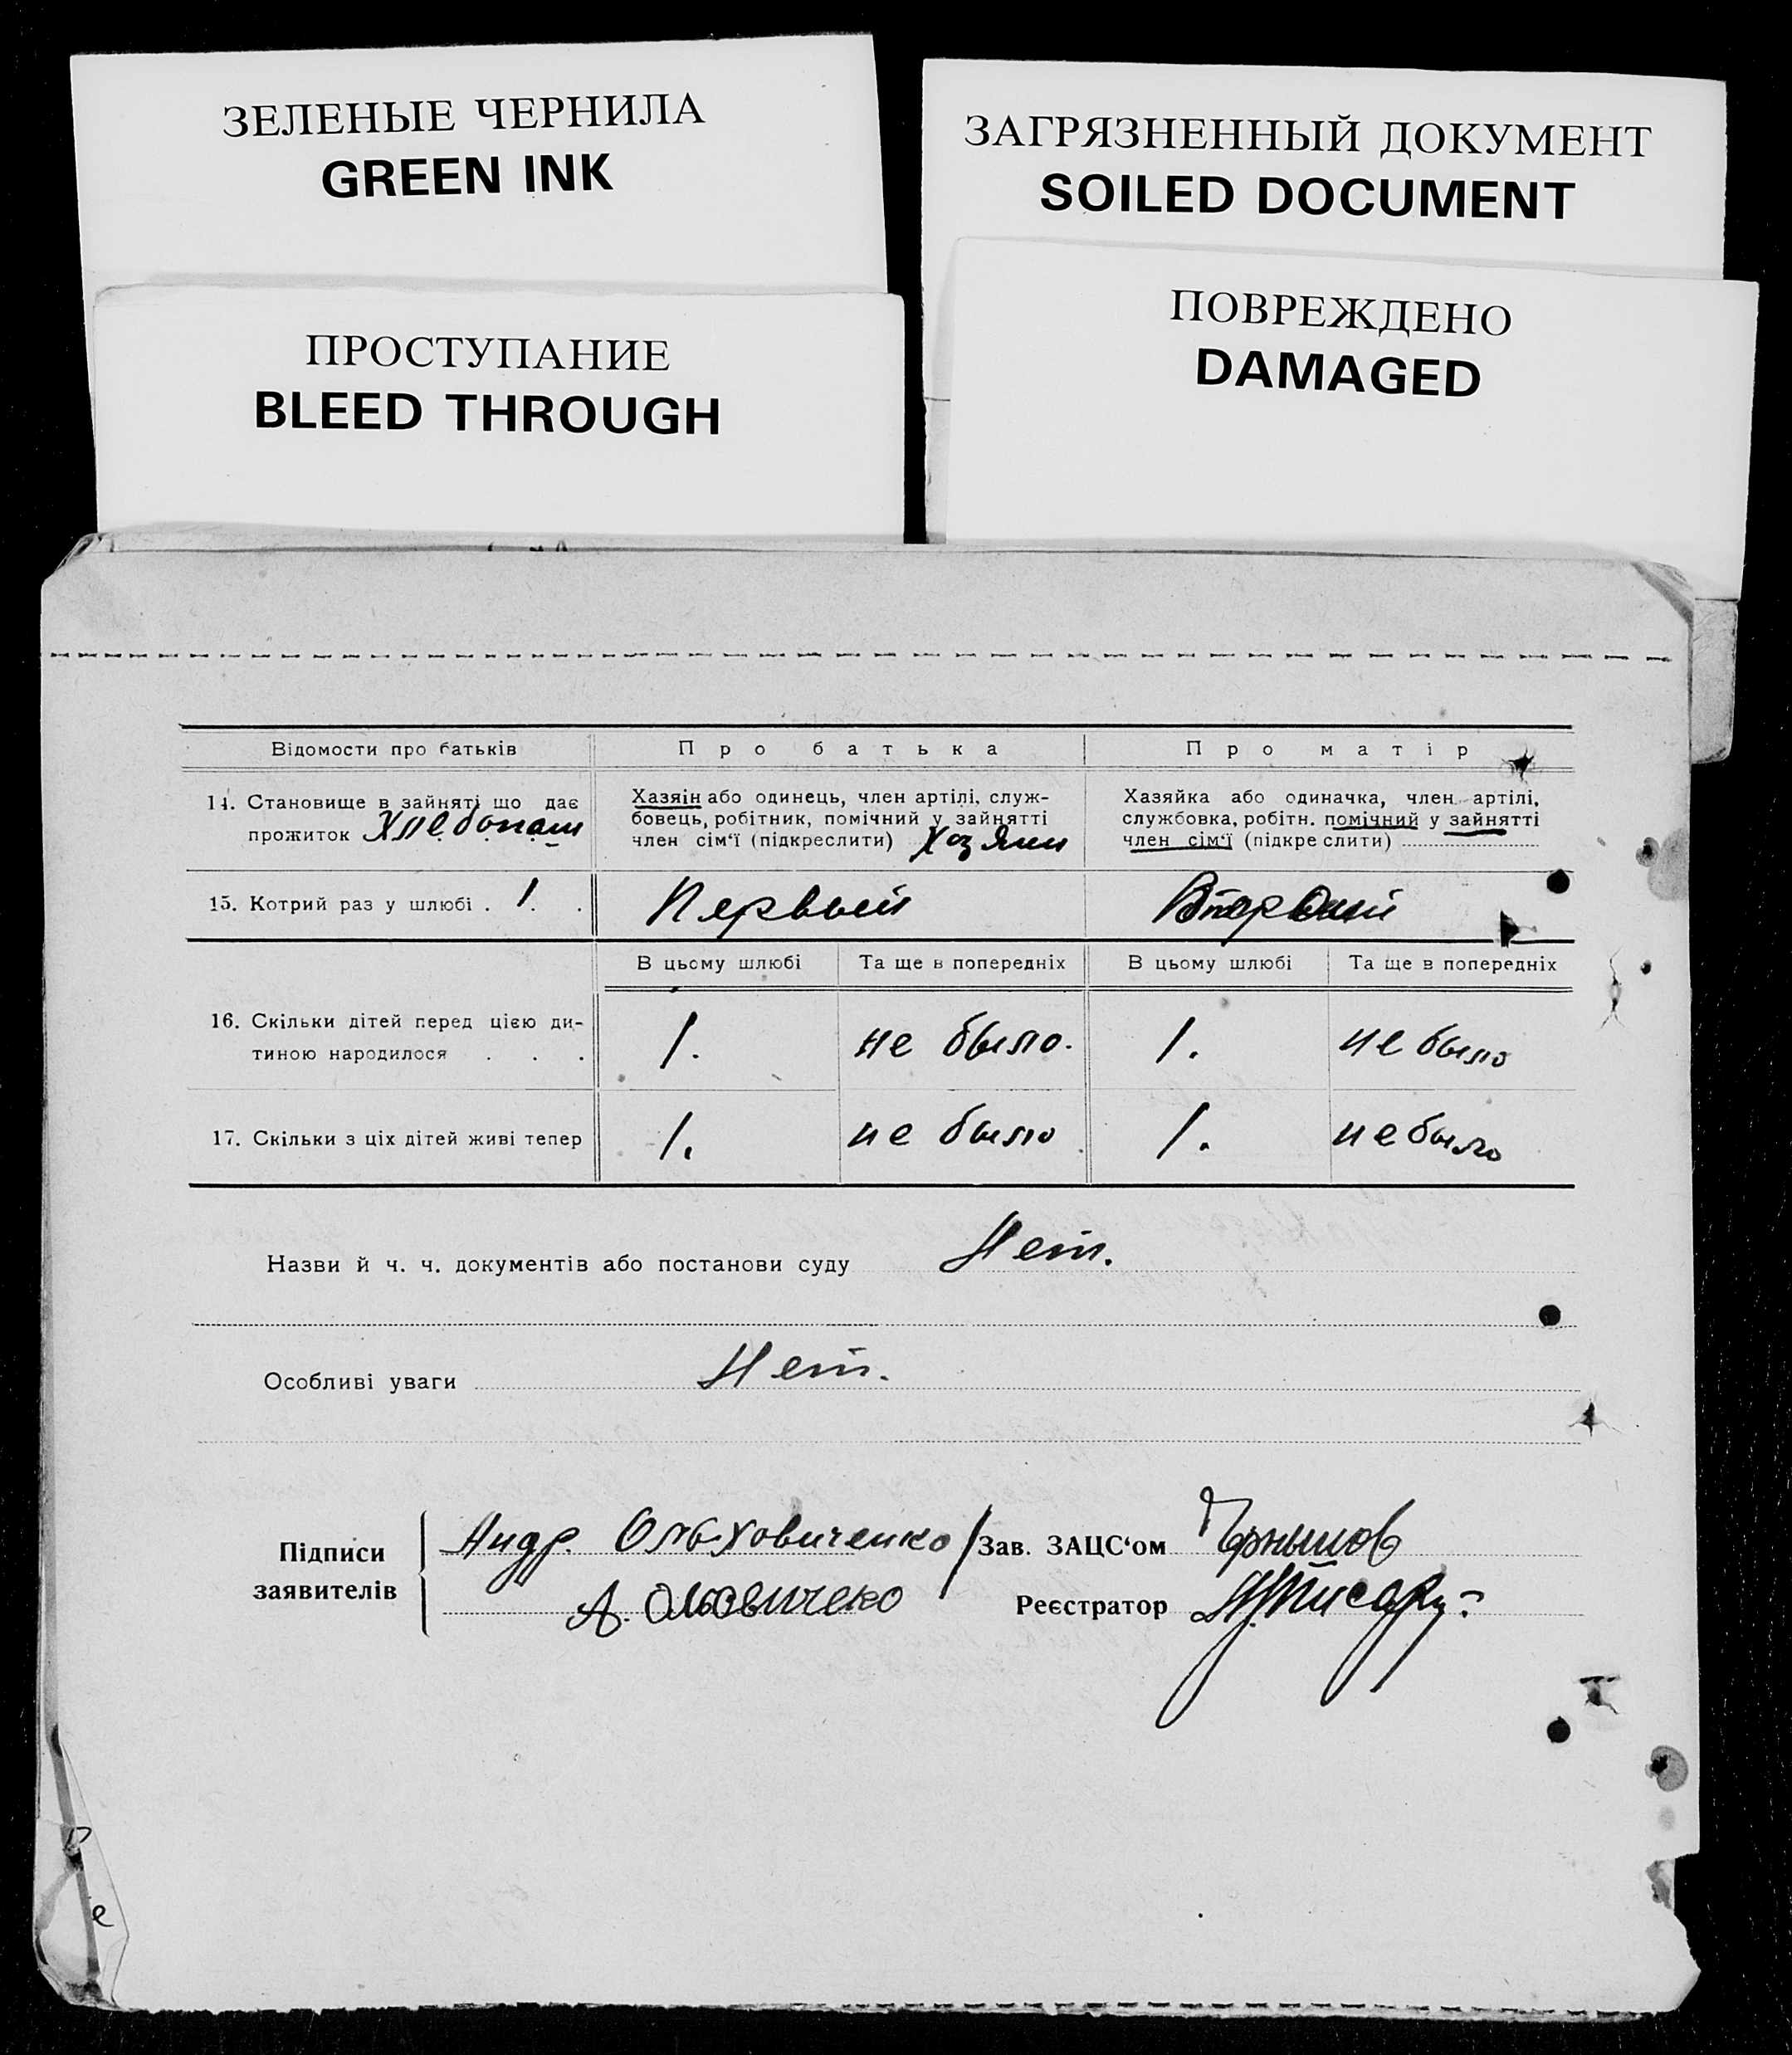 ЗЕЛЕНЫЕ ЧЕРНИЛА
GREEN INK
ЗАГРЯЗНЕННЫЙ ДОКУМЕНТ
SOILED DOCUMENT
ПРОСТУПАНИЕ
BLEED THROUGH
ПОВРЕЖДЕНО
DAMAGED
Відомости про батьків
Про батька
Про матір
14. Становище в зайняті що дає
прожиток Хлебопаш
Хазяін або одинець, член артілі, служ-
бовець, робітник, помічний у зайнятті
член сім'ї (підкреслити) Хозяин
Хазяйка або одиначка, член артілі,
службовка, робітн. помічний у зайнятті
член сім'ї (підкреслити)
15. Котрий раз у шлюбі . 1 . .
Первый
В цьому шлюбі
Та ще в попередніх
В цьому шлюбі
Та ще в попередніх
16. Скільки дітей перед цією ди-
тиною народилося . . .
1.
не было.
1.
не было
17. Скільки з ціх дітей живі тепер
1.
не было
1.
не было
Назви й ч. ч. документів або постанови суду Нет.
Особливі уваги Нет.
Підписи
заявителів
Андр. Ольховиченко
А.
Зав. ЗАЦС'ом
Реєстратор